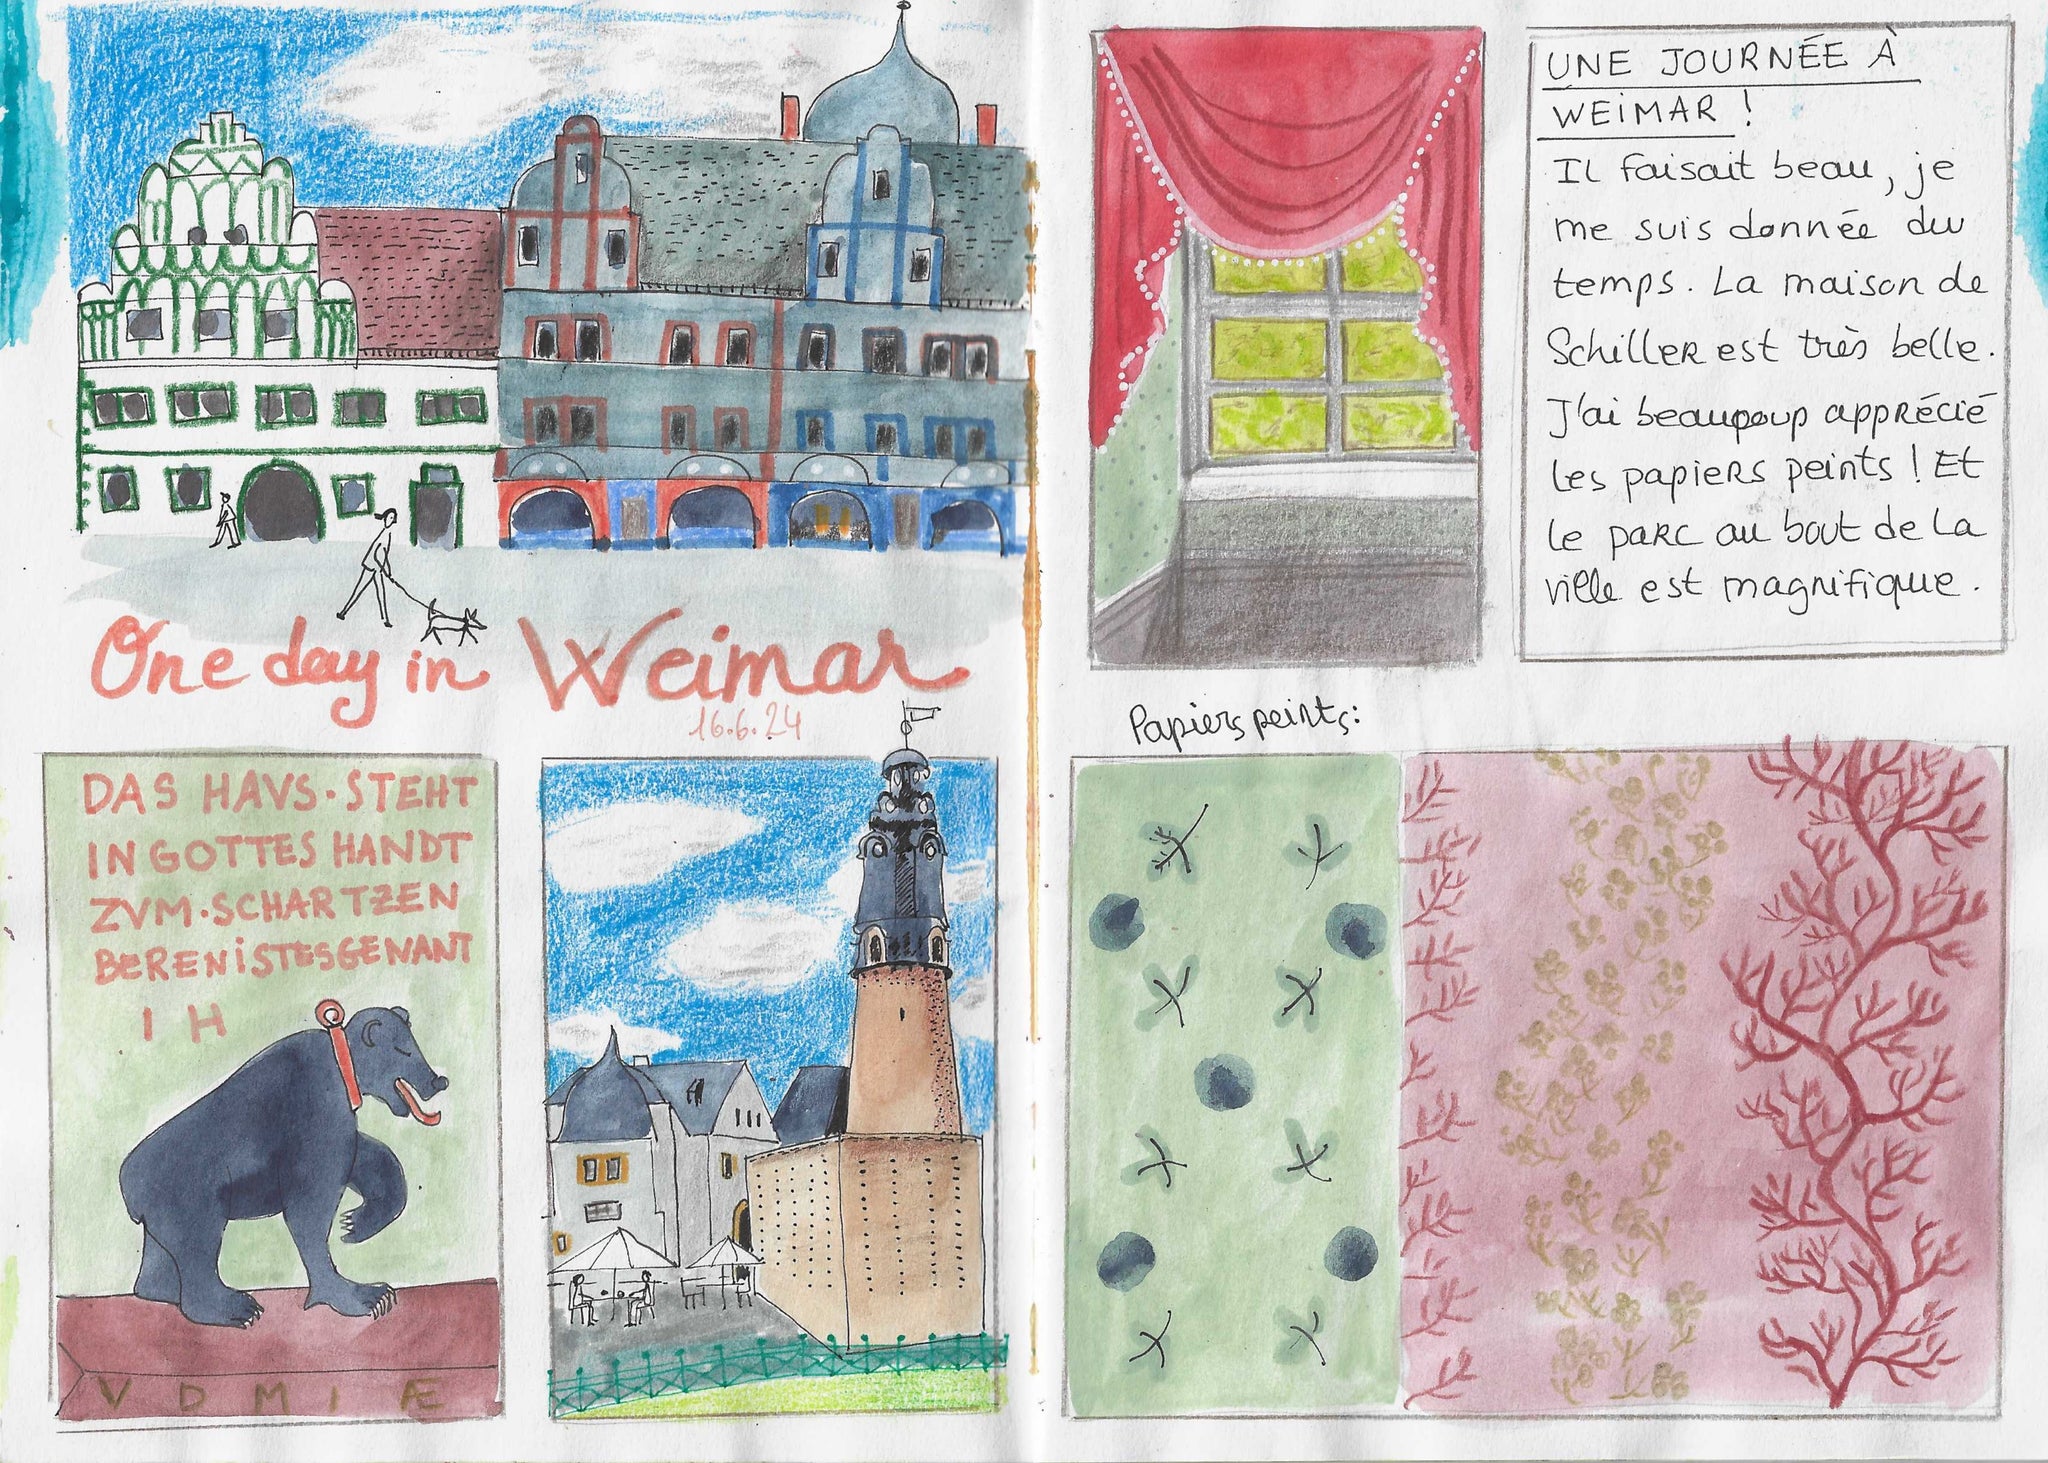 One day in Weimar
16.6.24
DAS HAVS·STEHT
IN GOTTES HANDT
ZVM·SCHARTZEN
BERENISTESGENANT
I H
V D M I Æ
UNE JOURNÉE À
WEIMAR !
Il faisait beau, je
me suis donnée du
temps. La maison de
Schiller est très belle.
J'ai beaucoup apprécié
les papiers peints ! Et
le parc au bout de la
ville est magnifique.
Papiers peints: